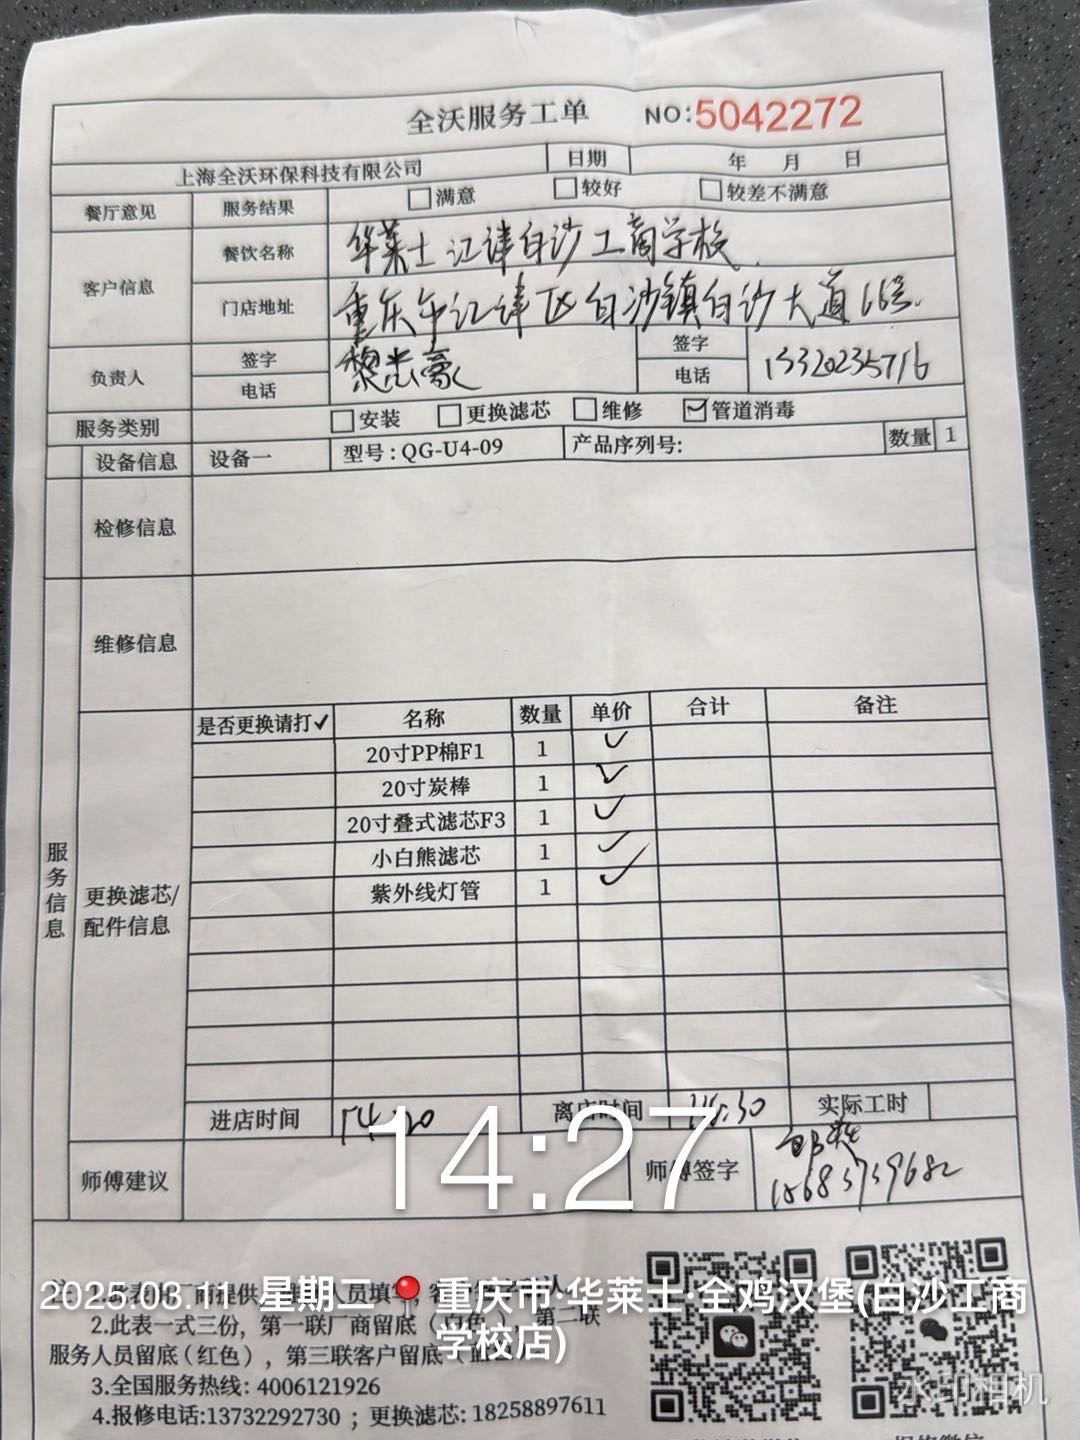 全沃服务工单 NO:5042272
上海全沃环保科技有限公司 日期 年 月 日
餐厅意见 服务结果 满意 较好 较差不满意
客户信息 餐饮名称 华莱士江津白沙工商学校
门店地址 重庆市江津区白沙镇白沙大道66号
负责人 签字 签字
电话 电话 13320235716
服务类别 安装 更换滤芯 维修 ✓管道消毒
设备信息 设备一 型号:QG-U4-09 产品序列号: 数量 1
检修信息
维修信息
服务信息
更换滤芯/
配件信息
是否更换请打✓ 名称 数量 单价 合计 备注
20寸PP棉F1 1 ✓
20寸炭棒 1 ✓
20寸叠式滤芯F3 1 ✓
小白熊滤芯 1 ✓
紫外线灯管 1 ✓
进店时间 14:20 离店时间 14:30 实际工时
师傅建议 师傅签字
14:27
2025.03.11 星期二 重庆市·华莱士·全鸡汉堡(白沙工商
学校店)
2.此表一式三份，第一联厂商留底（白色），第二联
服务人员留底（红色），第三联客户留底
3.全国服务热线: 4006121926
4.报修电话:13732292730 ；更换滤芯: 18258897611
水印相机